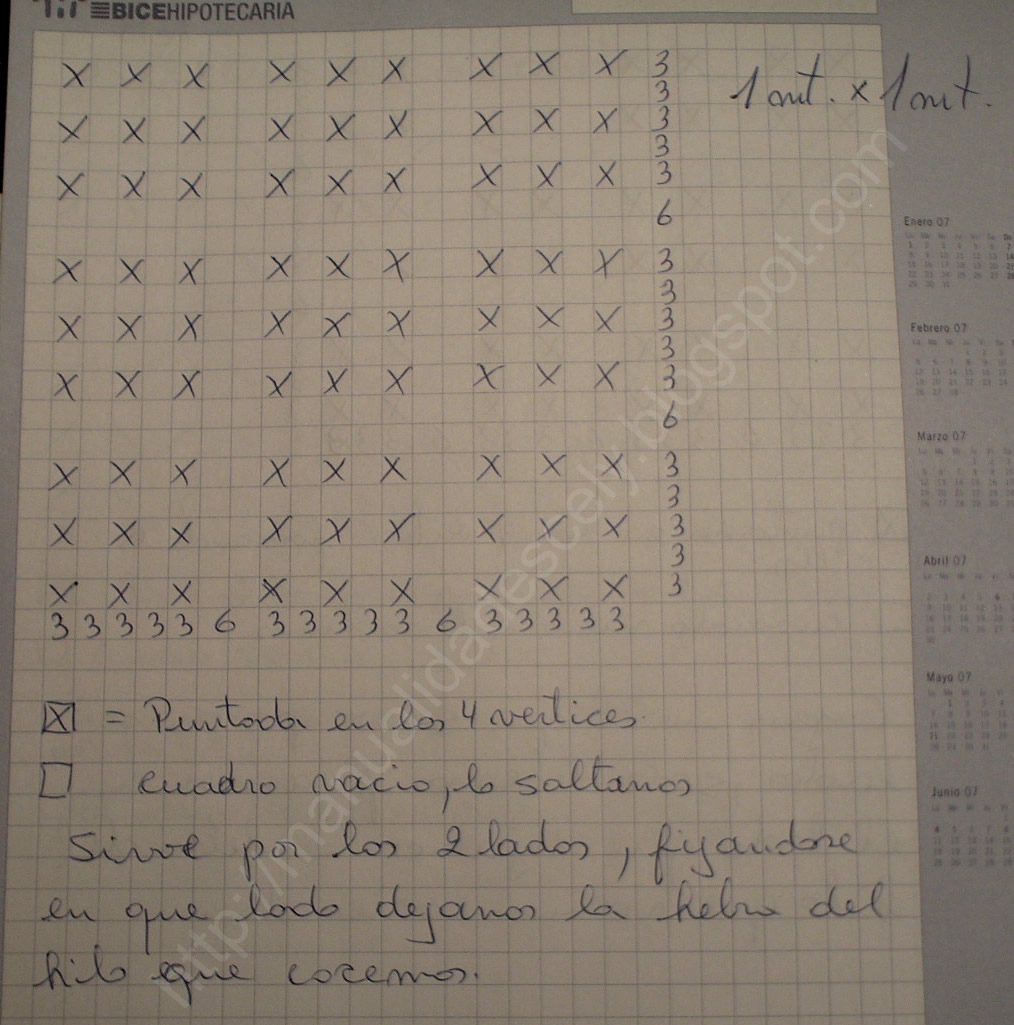 BICEHIPOTECARIA
X X X X X X X X X 3
3
1 mt. x 1 mt.
X X X X X X X X X 3
3
X X X X X X X X X 3
6
X X X X X X X X X 3
3
X X X X X X X X X 3
3
X X X X X X X X X 3
6
X X X X X X X X X 3
3
X X X X X X X X X 3
3
X X X X X X X X X 3
3 3 3 3 3 6 3 3 3 3 3 6 3 3 3 3 3
X = Puntada en los 4 vertices.
cuadro vacio, lo saltamos
Sirve por los 2 lados, fijandose
en que lado dejamos la hebra del
hilo que cocemos.
http://manualidadescely.blogspot.com
Enero 07
Febrero 07
Marzo 07
Abril 07
Mayo 07
Junio 07